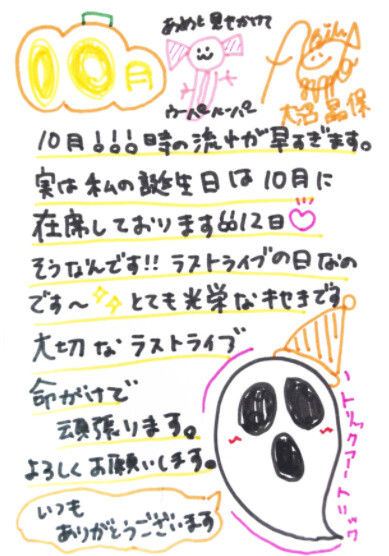 10月
あめと見せかけて
ウーパールーパー
大沼晶保
10月!!!時の流れが早すぎます。
実は私の誕生日は10月に
在席しております🎂12日♡
そうなんです!! ラストライブの日なの
です〜 とても光栄なキセキです
大切なラストライブ
命がけで
頑張ります。
よろしくお願いします。
トリックアートリック
いつも
ありがとうございます